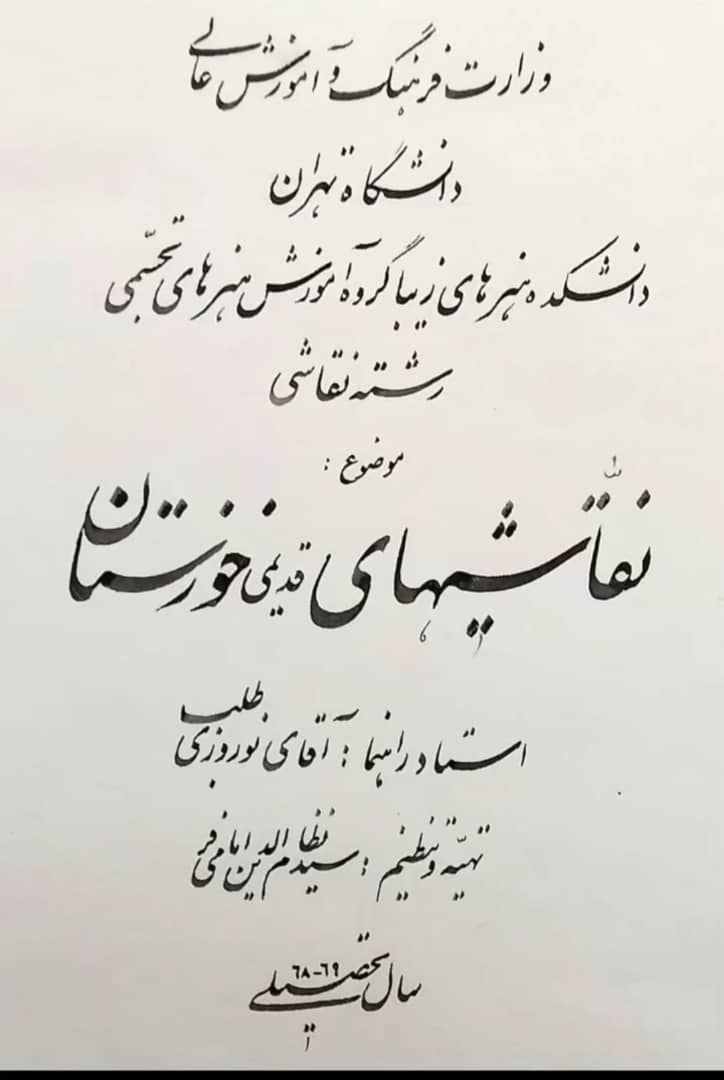 وزارت فرهنگ و آموزش عالی
دانشگاه تهران
دانشکده هنرهای زیبا گروه آموزش هنرهای تجسّمی
رشته نقاشی
موضوع :
نقّاشیهای قدیمی خوزستان
استاد راهنما : آقای نوروزی طلب
تهیّه و تنظیم : سید نظام الدین امامی فر
سال تحصیلی ۶۹-۶۸